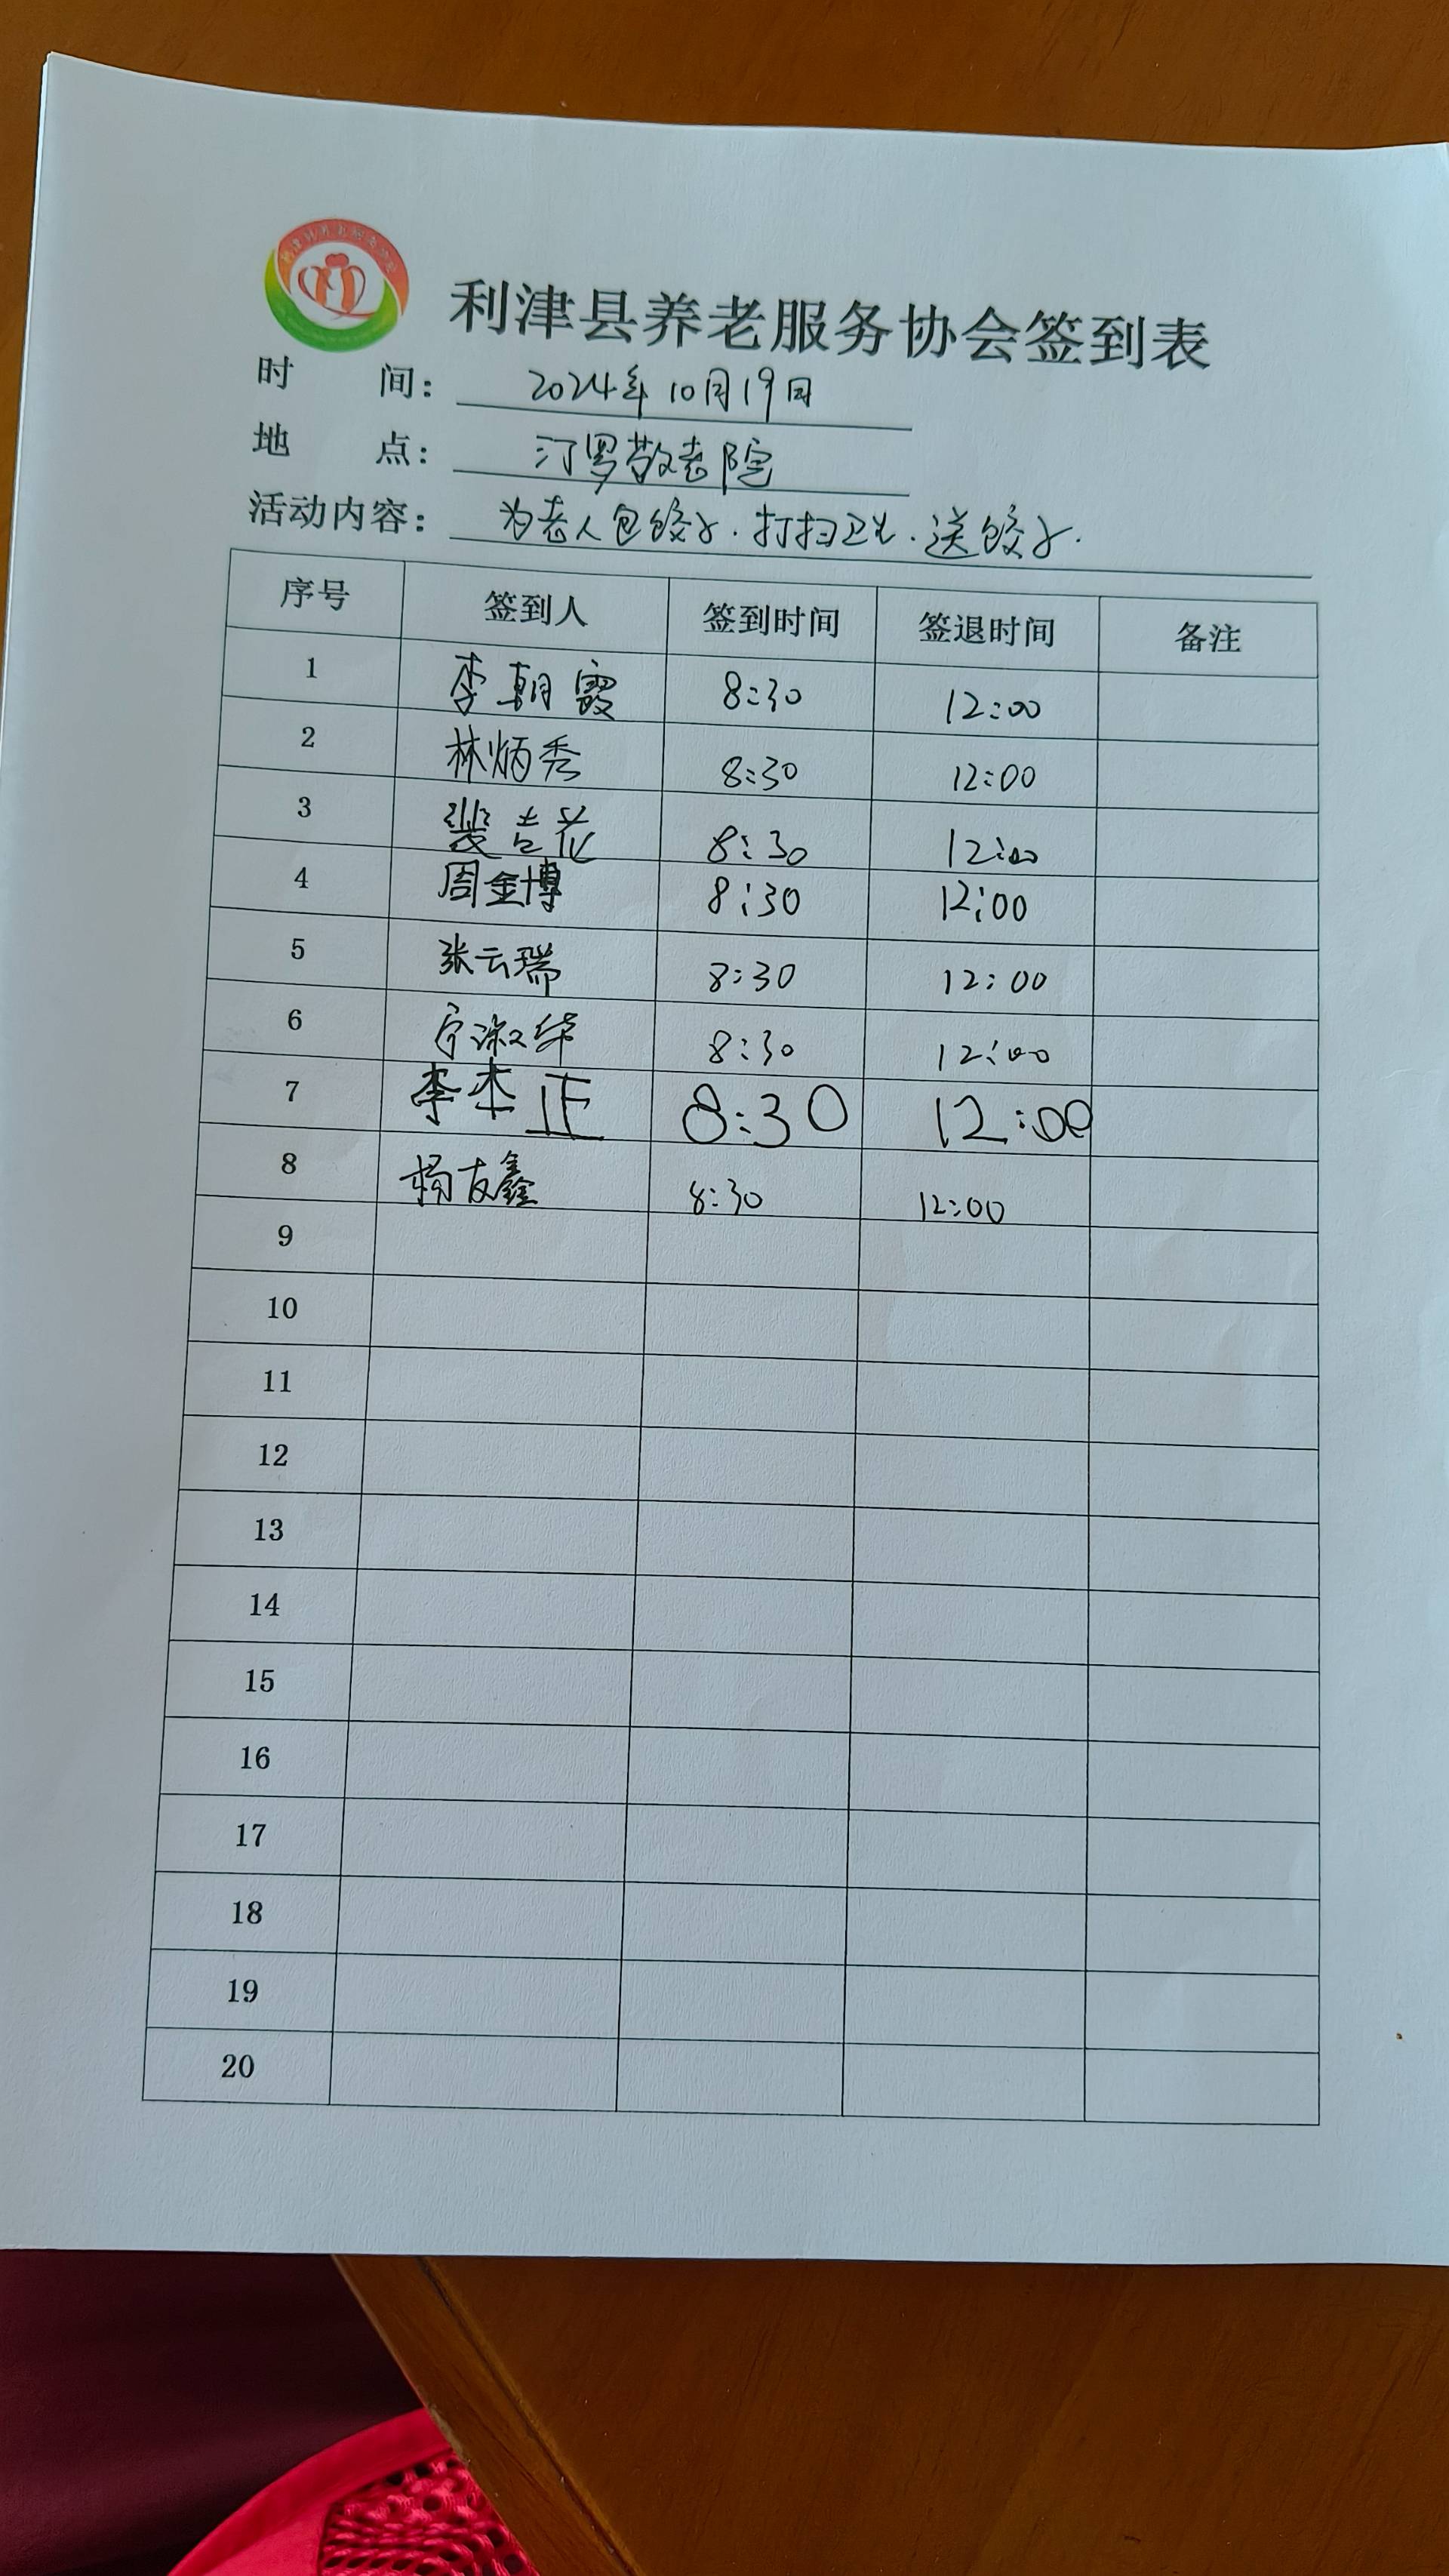 利津县养老服务协会
利津县养老服务协会签到表
时 间： 2024年10月19日
地 点： 汀罗敬老院
活动内容： 为老人包饺子.打扫卫生.送饺子.
序号 签到人 签到时间 签退时间 备注
1 李朝霞 8:30 12:00
2 林炳秀 8:30 12:00
3 裴吉花 8:30 12:00
4 周金博 8:30 12:00
5 张云瑞 8:30 12:00
6 宁淑华 8:30 12:00
7 李杢正 8:30 12:00
8 杨友鑫 8:30 12:00
9
10
11
12
13
14
15
16
17
18
19
20